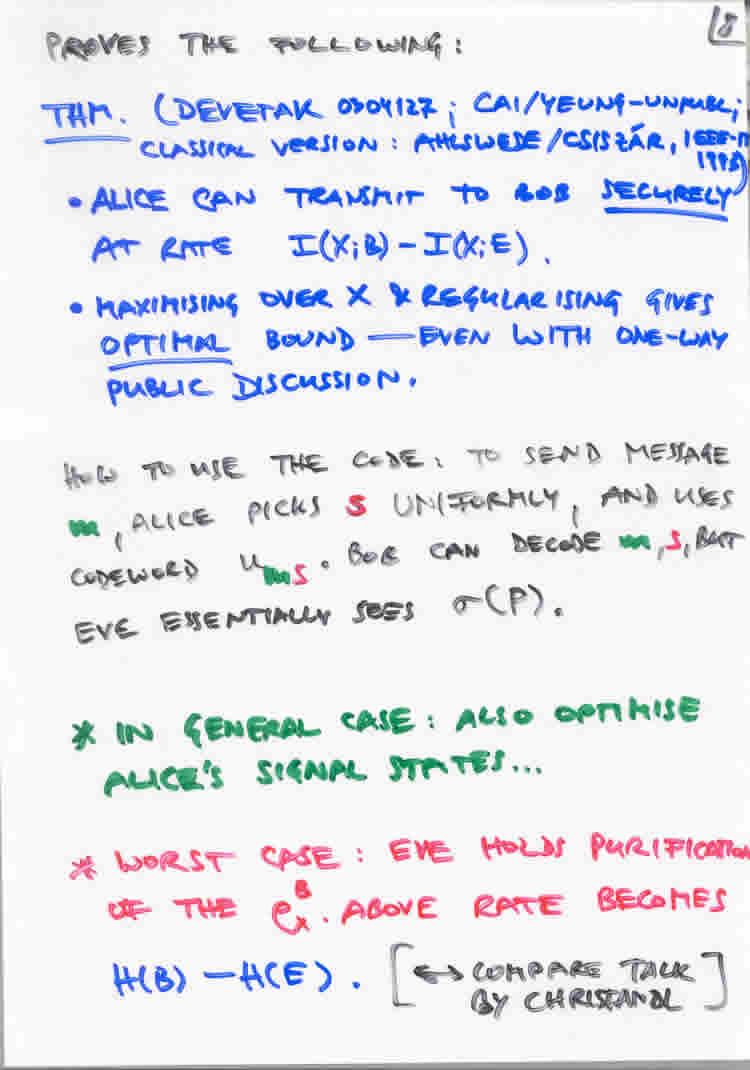 8
PROVES THE FOLLOWING:
THM. (DEVETAK 0304127; CAI/YEUNG-UNPUBL;
CLASSICAL VERSION: AHLSWEDE/CSISZÁR, IEEE-IT
1993)
• ALICE CAN TRANSMIT TO BOB SECURELY
AT RATE I(X;B)-I(X;E).
• MAXIMISING OVER X & REGULARISING GIVES
OPTIMAL BOUND — EVEN WITH ONE-WAY
PUBLIC DISCUSSION.
HOW TO USE THE CODE: TO SEND MESSAGE
m, ALICE PICKS s UNIFORMLY, AND USES
CODEWORD u_ms. BOB CAN DECODE m,s, BUT
EVE ESSENTIALLY SEES σ(P).
* IN GENERAL CASE: ALSO OPTIMISE
ALICE'S SIGNAL STATES...
* WORST CASE: EVE HOLDS PURIFICATION
OF THE ρ_x^B. ABOVE RATE BECOMES
H(B) - H(E). [↔ COMPARE TALK
BY CHRISTANDL]